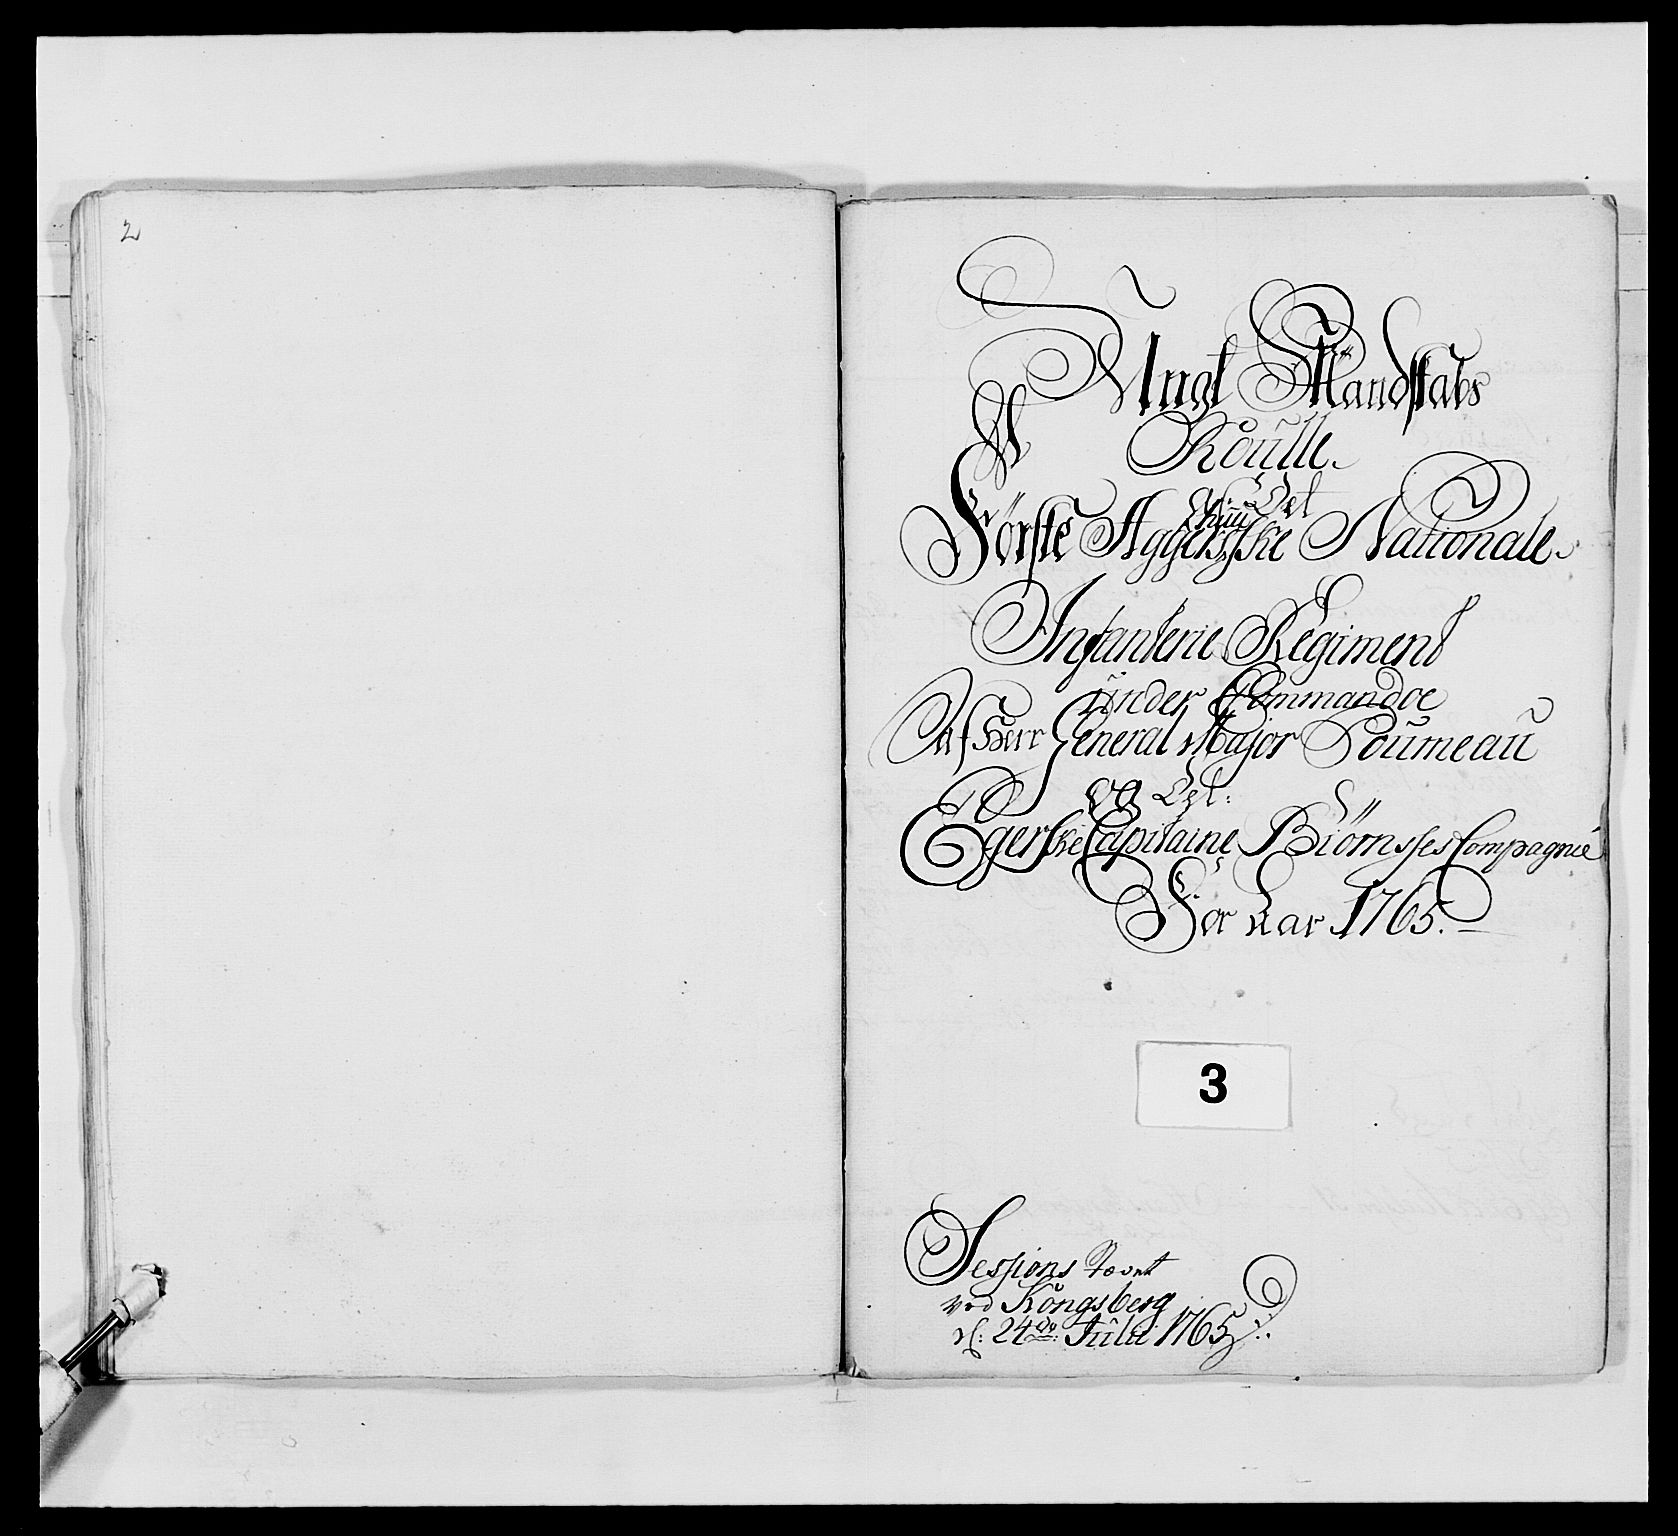 2
Ungt Mandskabs
Roulle
Ved Det
Første Aggershuusske Nationale
Infanterie Regiment
under Commandoe
Af Herr General Major Poumeau
og Det:
Egerske Capitaine Biørnsses Compagnie
For Aar 1765.
3
Sessions Parat
ved Kongsberg
d: 24de Julii 1765